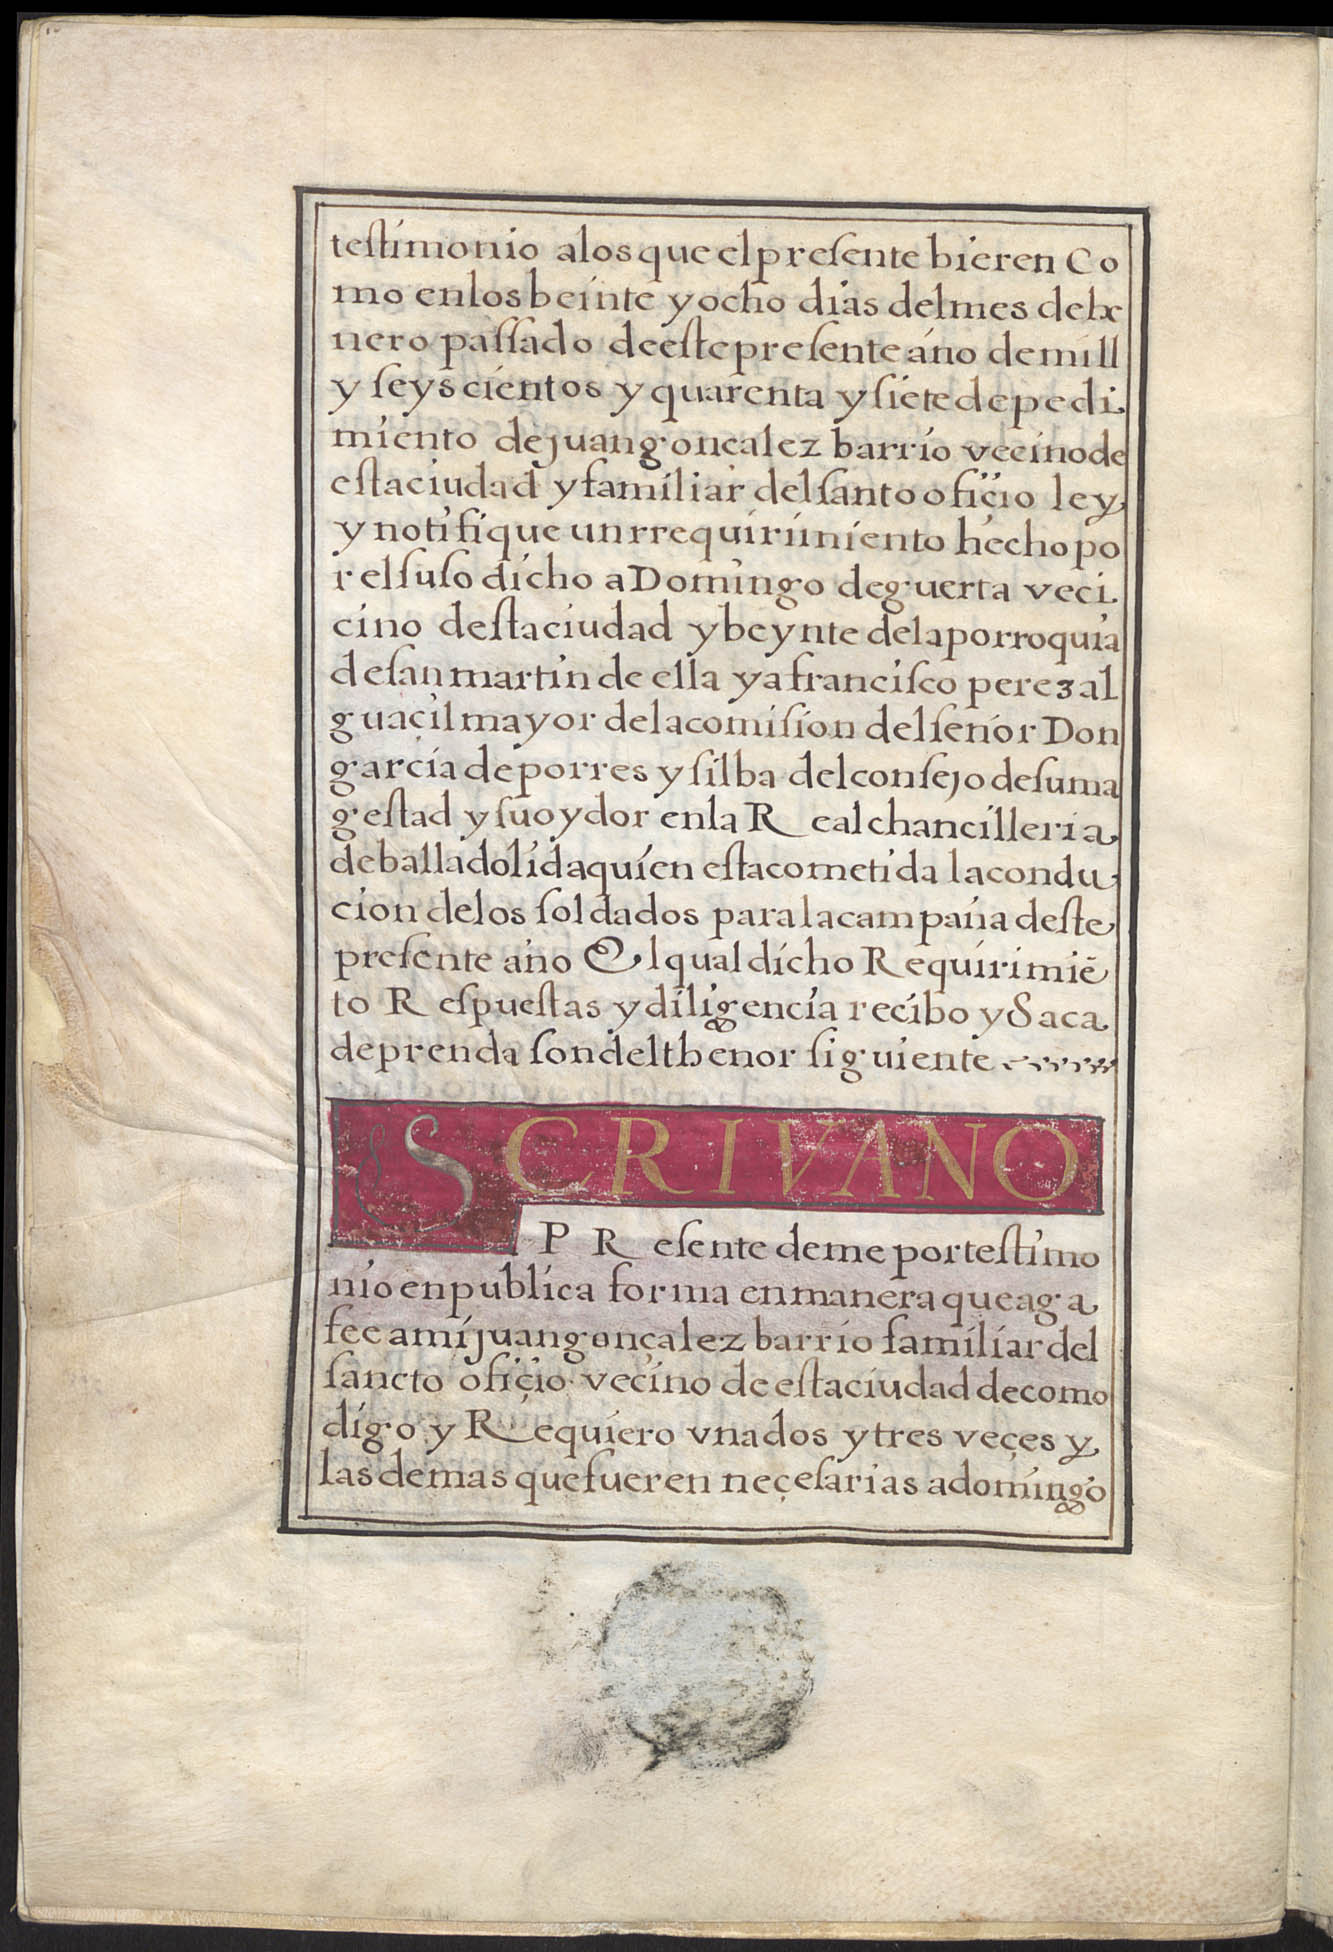 testimonio alos que el presente bieren Co
mo enlos beinte y ocho dias del mes de hx
nero passado de este presente año de mill
y seyscientos y quarenta y siete de pedi
miento de juan gonçalez barrio vecino de
esta ciudad y familiar del santo ofiçio ley
y notifique un rrequirimiento hecho po
r el suso dicho a Domingo de guerta veci
cino desta ciudad y beynte de la porroquia
de san martin de ella y a francisco perez al
guaçil mayor de la comision del señor Don
garcia de porres y silba del consejo de su ma
gestad y su oydor en la Real chancilleria
de balladolid a quien esta cometida la condu
cion de los soldados para la campaña deste
presente año El qual dicho Requirimiẽ
to Respuestas y diligencia recibo y Saca
de prenda son del thenor siguiente
ESCRIVANO
PResente deme por testimo
nio en publica forma en manera que aga
fee a mi juan gonçalez barrio familiar del
sancto ofiçio vecino de esta ciudad de como
digo y Requiero vna dos y tres veçes y
las demas que fueren neçesarias a domingo